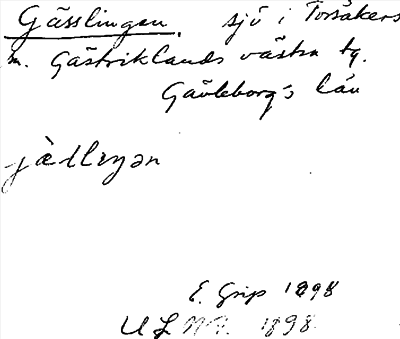 Gässlingen. sjö i Torsåkers
sn. Gästriklands västra tg.
Gävleborgs län
jæ̀slŋən
E. Grip 1898
ULMA. 1898.